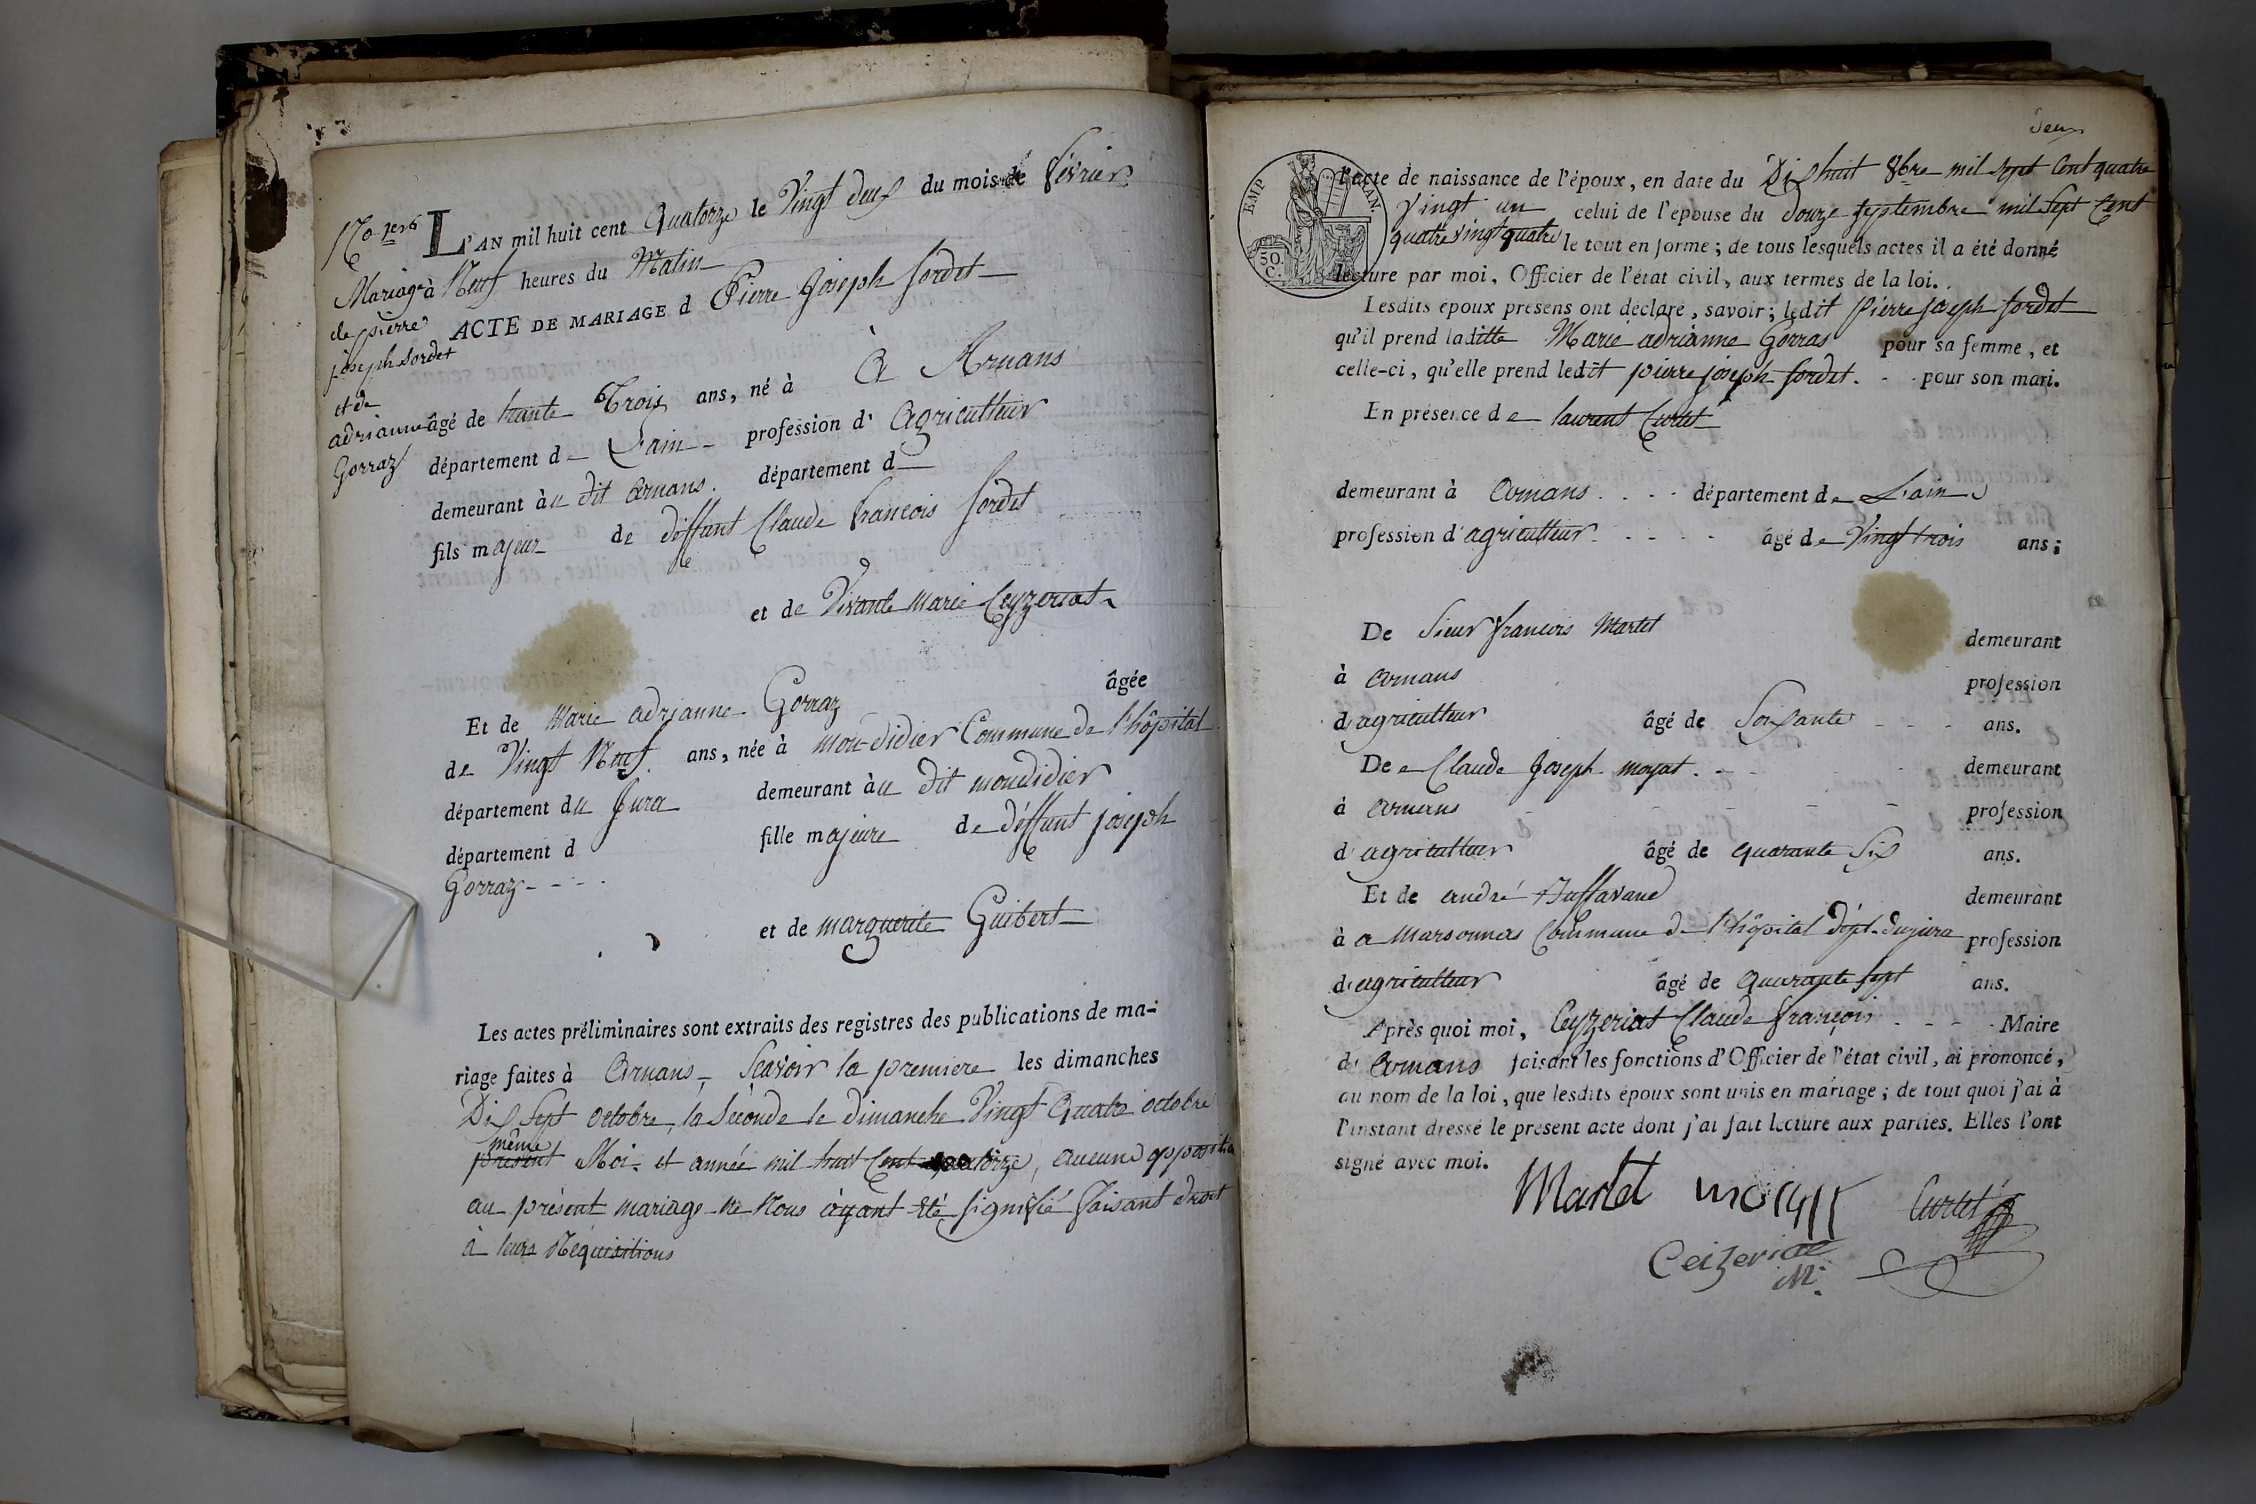 No 1er
L'AN mil huit cent Quatorze le Vingt deux du mois de février
Mariage à Neuf heures du Matin
de pierre ACTE DE MARIAGE d Pierre Joseph Sordet
joseph Sordet
et de
adrianne
Gorraz
âgé de trente Trois ans, né à à Arnans
département d L'ain profession d'Agriculteur
demeurant àu dit arnans. département d
fils majeur de déffunt Claude françois Sordet
et de Vivante Marie Ceyzeriat
Et de Marie adrianne Gorraz âgée
de Vingt Neuf ans, née à mon-didier Commune de l'hôpital
département du Jura demeurant àu dit mondidier
département d fille majeure de déffunt joseph
Gorraz
et de marguerite Guibert
Les actes préliminaires sont extraits des registres des publications de ma-
riage faites à Arnans, Scavoir la premiere les dimanches
Dix Sept octobre, la Séconde le dimanche Vingt Quatre octobre
même
présent Moi. et année mil huit Cent quatorze, aucune oppositio
au présent mariage ne Nous ayant été signifié faisant droit
à leurs Réquisitions
deux
EMP.
50.
C.
l'acte de naissance de l'époux, en date du Dix huit 8bre mil sept Cent quatre
Vingt un celui de l'épouse du douze septembre mil Sept Cent
quatre Vingt quatre le tout en forme; de tous lesquels actes il a été donné
lecture par moi, Officier de l'état civil, aux termes de la loi.
Lesdits époux présens ont déclaré, savoir; ledit Pierre joseph Sordet
qu'il prend laditte Marie adrianne Gorras pour sa femme, et
celle-ci, qu'elle prend ledit pierre joseph Sordet. pour son mari.
En présence de laurent Curtet
demeurant à arnans département de L'ain
profession d'agriculteur âgé de Vingt trois ans;
De Sieur françois Martet demeurant
à arnans profession
d'agriculteur âgé de Soixante ans.
De Claude Joseph moyat demeurant
à arnans profession
d'agriculteur âgé de quarante Six ans.
Et de andré demeurant
à a marsonnas Commune de l'hôpital dépt. du jura profession
d'agriculteur âgé de Quarante Sept ans.
Après quoi moi, Ceyzeriat Claude françois Maire
d'Arnans faisant les fonctions d'Officier de l'état civil, ai prononcé,
au nom de la loi, que lesdits époux sont unis en mariage; de tout quoi j'ai à
l'instant dressé le présent acte dont j'ai fait lecture aux parties. Elles l'ont
signé avec moi.
Martet Curtet
Ceizeriat
M.